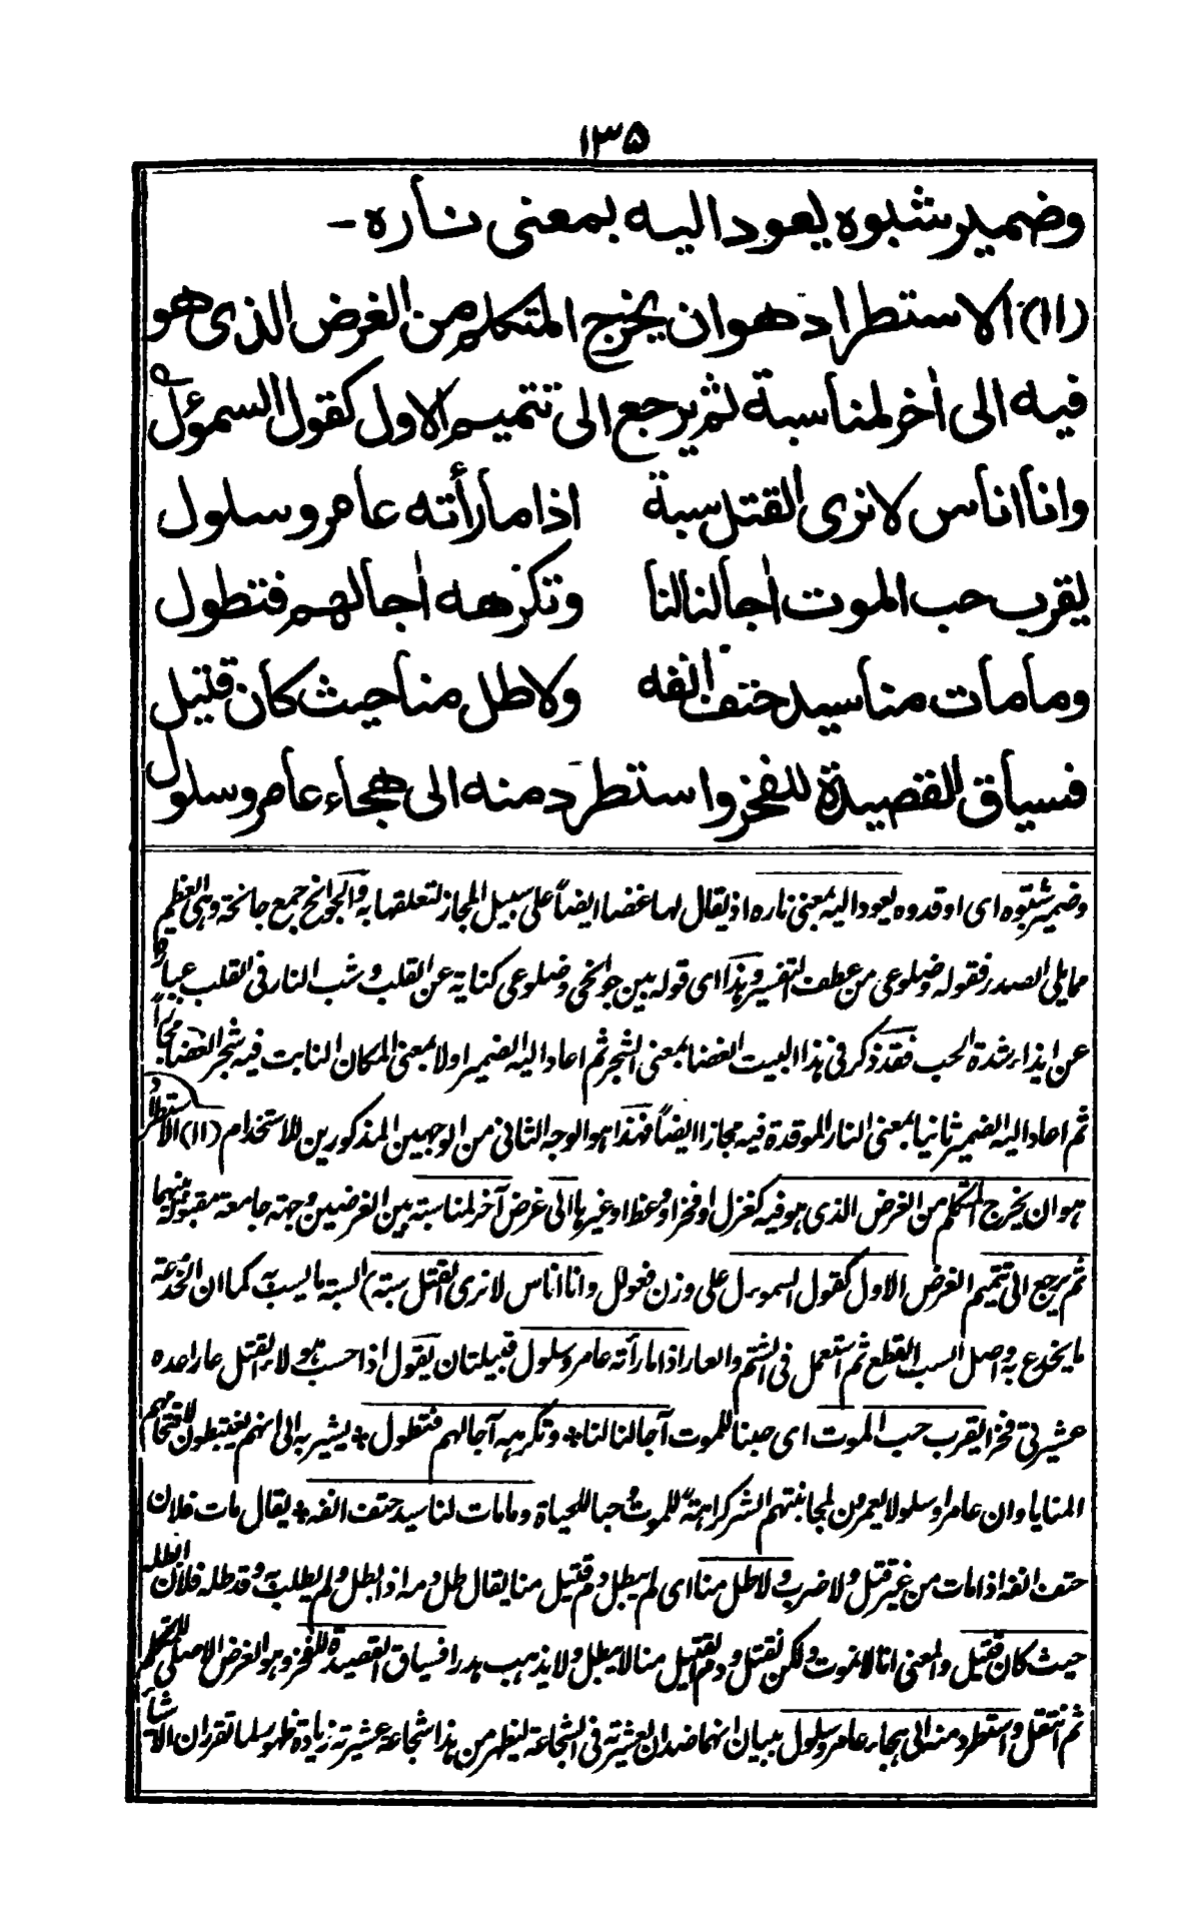 ١٣٥
وضمير شبوه يعود اليه بمعنى ناره -
(١١) الاستطراد هو ان يخرج المتكلم من الغرض الذى هو
فيه الى اٰخر لمناسبة ثم يرجع الى تتميم الاول كقول السموئل
وانا اناس لانرى القتل سبة اذا ما رأته عامر وسلول
يقرب حب الموت اٰجالنا لنا وتكرهه اٰجالهم فتطول
وما مات منا سيد حتف انفه ولا طل منا حيث كان قتيل
فسياق القصيدة للفخر واستطرد منه الى هجاء عامر وسلول
وضمير شبوه اى اوقدوه يعود اليه بمعنى ناره اذ يقال لها غضا ايضاً على سبيل المجاز لتعلقها به والجوانح جمع جانحة وهى العظم
مما يلى الصدر فقوله وضلوعى من عطف التفسير وهذا اى قوله بين جوانحى وضلوعى كناية عن القلب وشب النار فى القلب عبارة
عن ايذاء شدة الحب فقد ذكر فى هذا البيت الغضا بمعنى الشجر ثم اعاد اليه الضمير اولا بمعنى المكان النابت فيه شجر الغضا مجازاً
ثم اعاد اليه الضمير ثانيا بمعنى النار الموقدة فيه مجازا ايضاً فهذا هو الوجه الثانى من الوجهين المذكورين للاستخدام (١١) الاستطراد
هو ان يخرج المتكلم من الغرض الذى هو فيه كغزل او فخر او وعظ او غيرها الى غرض آخر لمناسبة بين الغرضين وجهة جامعة مقبولة بينهما
ثم يرجع الى تتميم الغرض الاول كقول السموءل على وزن فعولل وانا اناس لانرى القتل سبة) السبة ما يسب به كما ان الخدعة
ما يخدع به واصل السب القطع ثم استعمل فى الشتم والعار اذا ما رأته عامر وسلول قبيلتان يقول اذا حسب هؤلاء القتل عارا عده
عشيرتى فخرا يقرب حب الموت اى حبنا للموت آجالنا لنا * وتكرهه آجالهم فتطول * يشير به الى انهم يغتبطون لاقتحامهم
المنايا وان عامرا وسلولا يعمرون لمجانبتهم الشر كراهةً للموت وحبا للحياة وما مات لنا سيد حتف انفه * يقال مات فلان
حتف انفه اذا مات من غير قتل ولا ضرب ولا طل منا اى لم يبطل دم قتيل منا يقال طل دمه اذا بطل ولم يطلب به وقد طله فلان ابطله
حيث كان قتيل والمعنى انا لا نموت ولكن نقتل ودم القتيل منا لا يبطل ولا يذهب هدرا فسياق القصيدة للفخر وهو الغرض الاصلى للمتكلم
ثم انتقل واستطرد منه الى هجاء عامر وسلول ببيان انهما ضدان لعشيرته فى الشجاعة ليظهر من هذا شجاعة عشيرته زيادة ظهور لما تقرر ان الاشيا